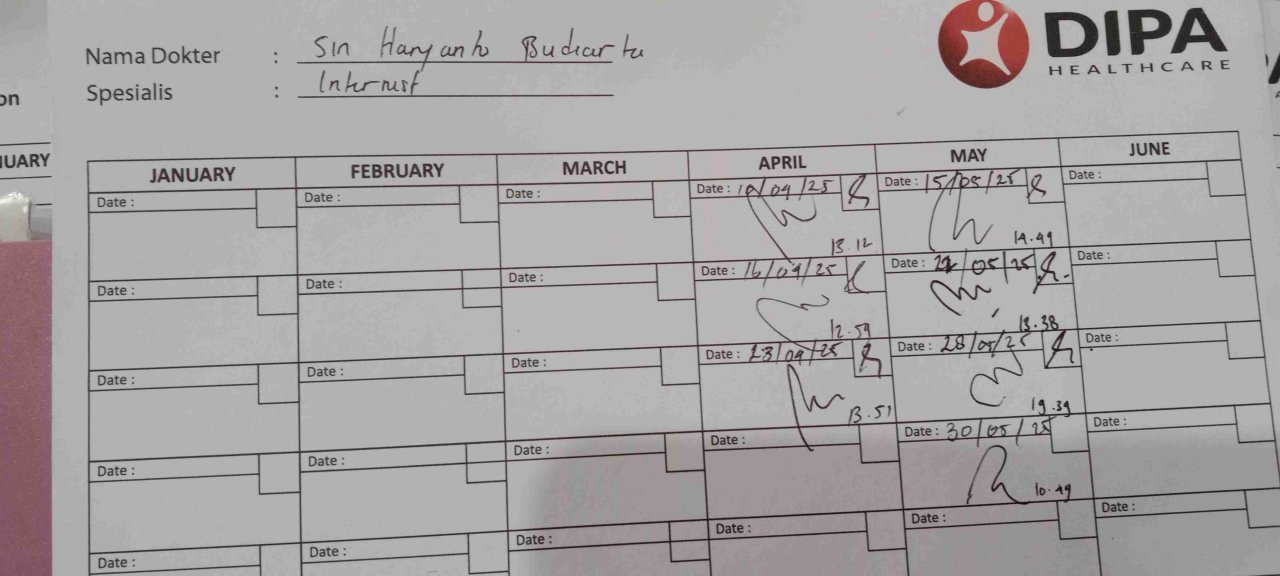 DIPA
HEALTHCARE
Nama Dokter : Sin Haryanto Budiarta
Spesialis : Internist
on
UARY
JANUARY FEBRUARY MARCH APRIL MAY JUNE
Date : Date : Date : Date : 10/04/25 Date : 15/05/25 Date :
13.12 14.49
Date : Date : Date : Date : 16/04/25 Date : 22/05/25 Date :
12.59 13.38
Date : Date : Date : Date : 23/04/25 Date : 28/05/25 Date :
13.51 19.39
Date : Date : Date : Date : Date : 30/05/25 Date :
10.49
Date : Date : Date : Date : Date : Date :